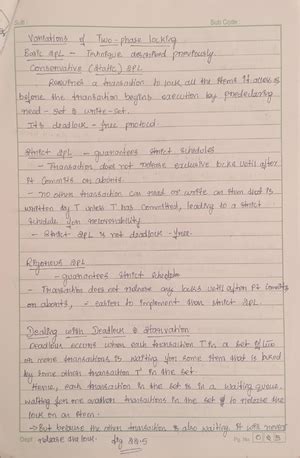 Sub
Sub Code
Variations of Two-phase locking
Basic 2PL - Technique described previously.
Conservative (Static) 2PL
Requires a transaction to lock all the items it access
before the transaction begins execution by predeclaring
read-set & write-set.
It's deadlock-free protocol.
Strict 2PL - guarantees strict schedules
- Transaction does not release exclusive locks until after
it commits or aborts.
- no other transaction can read or write an item that is
written by T unless T has committed, leading to a strict
schedule for recoverability.
- Strict 2PL is not deadlock-free.
Rigorous 2PL
- guarantees strict
- Transaction does not release any locks until after it commits
or aborts, easier to implement than strict 2PL.
Dealing with Deadlock & Starvation
Deadlock occurs when each transaction T in a set of two
or more transactions is waiting for some item that is locked
by some other transaction T' in the set.
Hence, each transaction in the set is in a waiting queue,
waiting for one other transactions in the set to release the
lock on an item.
→ But because the other transaction is also waiting, it will never
release the lock. fig 22.5
Dept.
Pg. No.